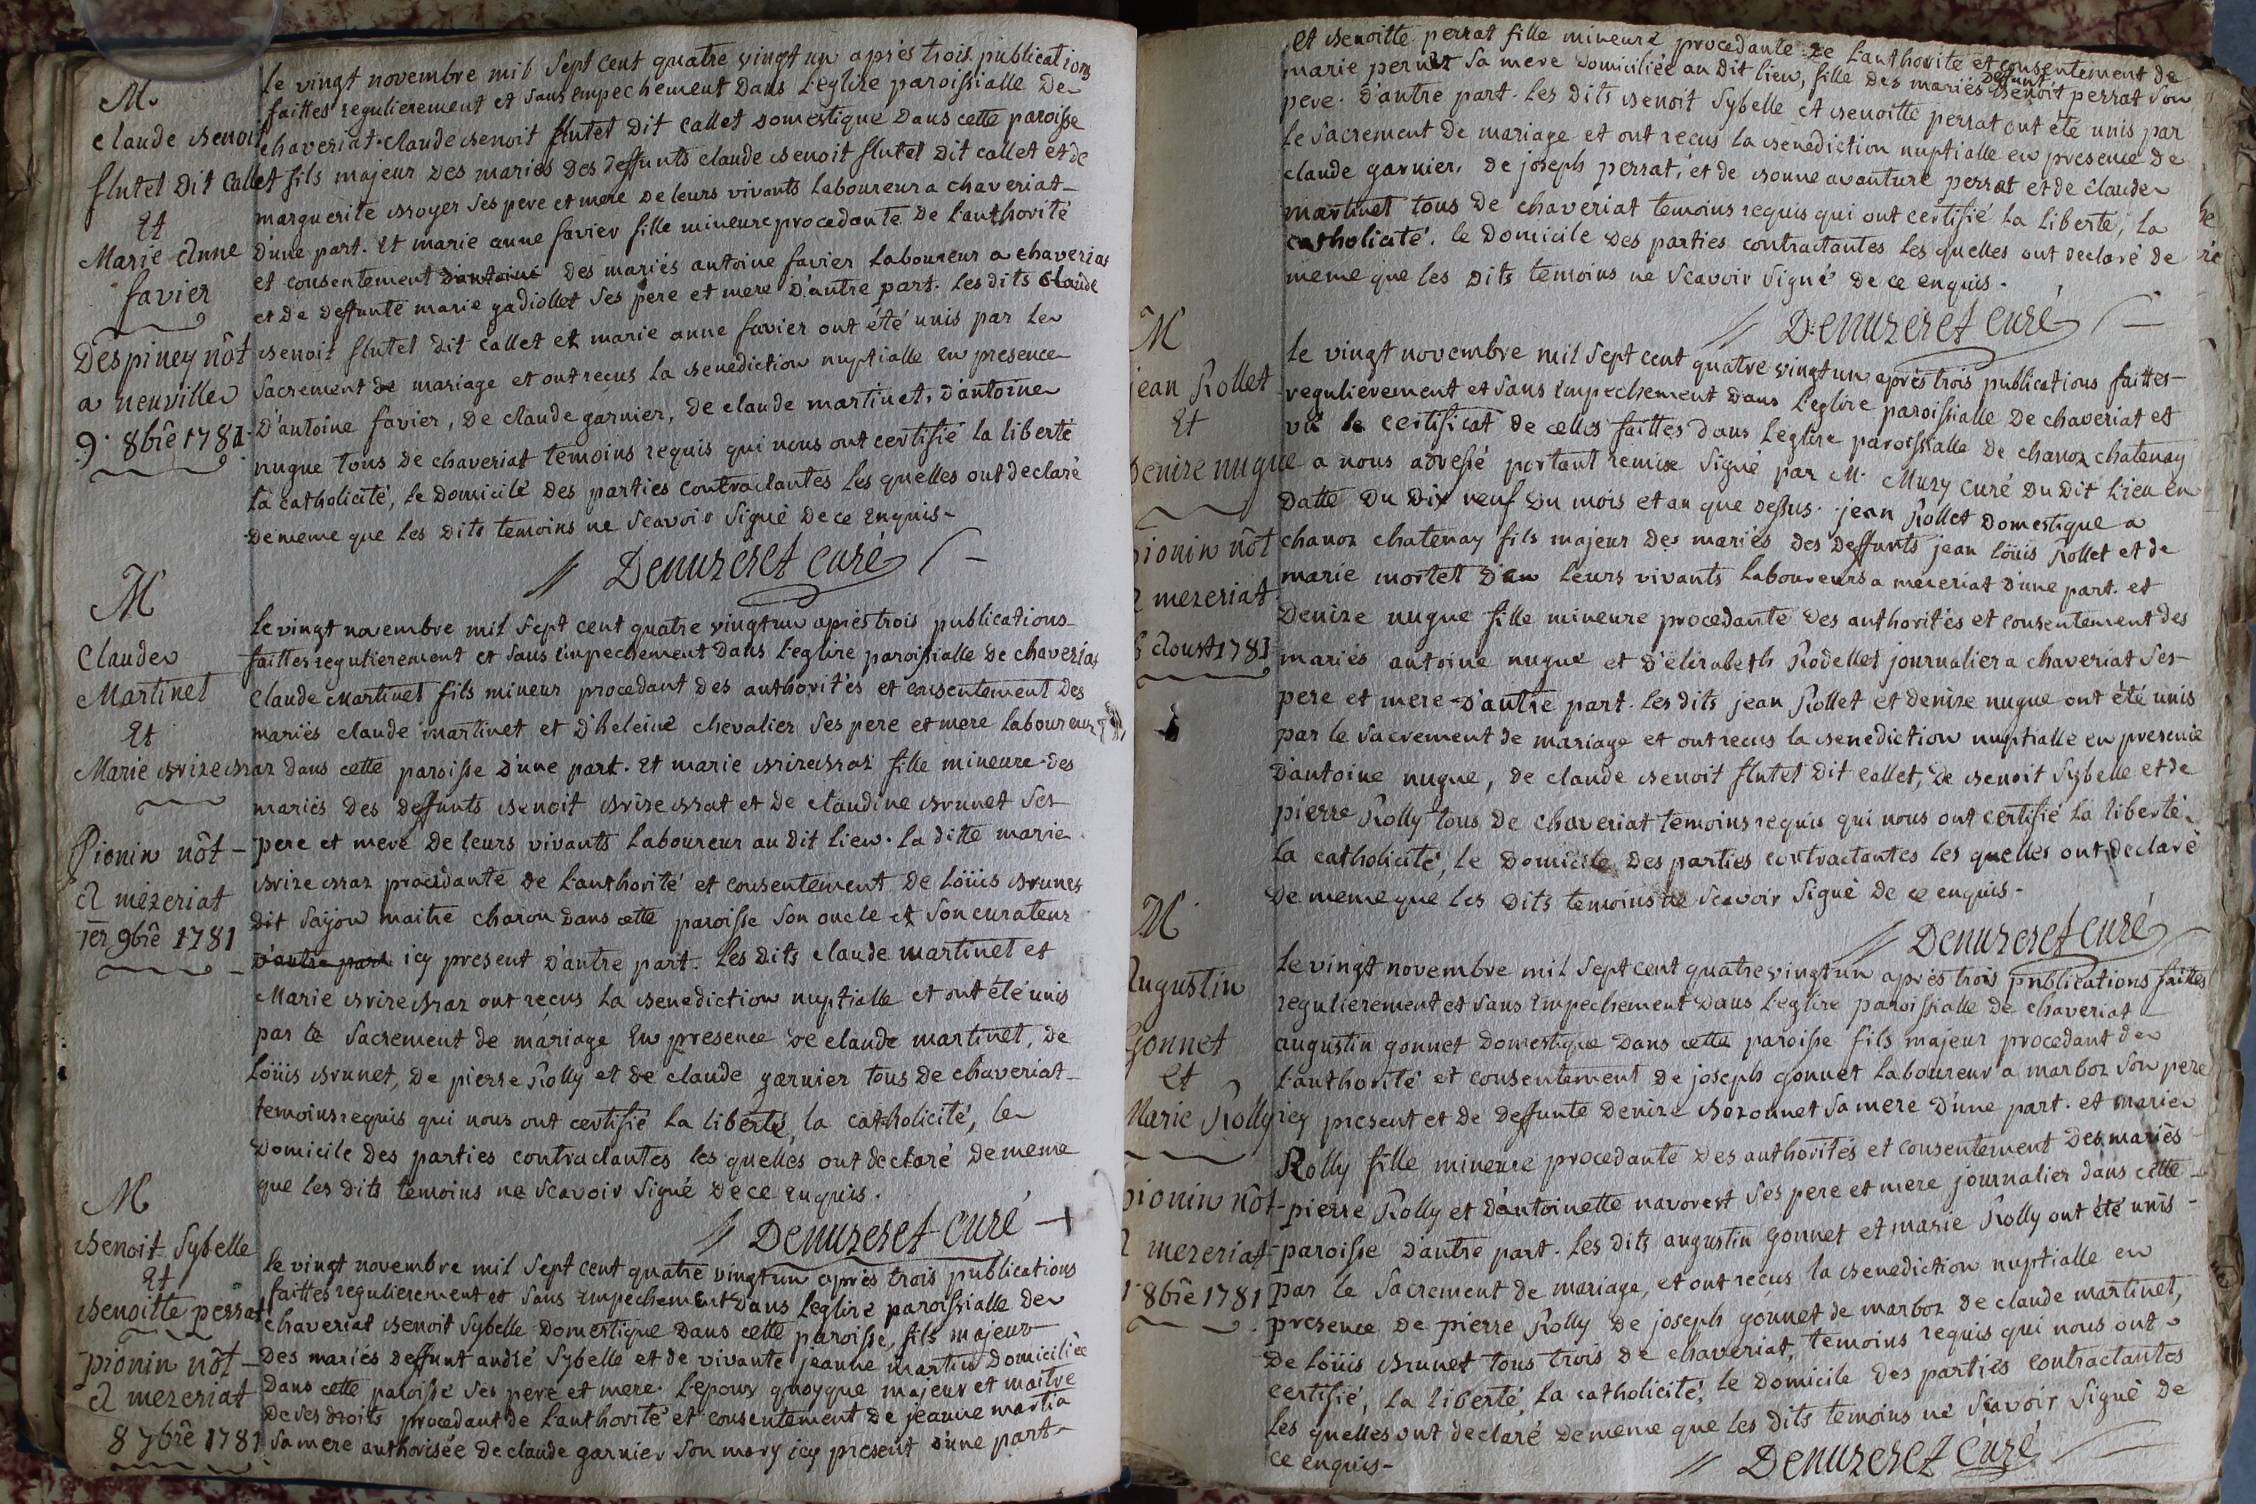 M.
claude benoit
flutet dit callet
Et
Marie Anne
favier
Despiney nôt
a neuville
9. 8bre 1781.
le vingt novembre mil sept cent quatre vingt un après trois publications
faittes regulierement et sans empechement dans l'eglize paroissialle de
chaveriat. claude benoit flutet dit callet domestique dans cette paroisse
fils majeur des mariés des deffunts claude benoit flutet dit callet et de
marguerite broyer ses pere et mere de leurs vivants laboureur a chaveriat
d'une part. Et marie anne favier fille mineure procedante de l'authorité
et consentement d'antoine des mariés antoine favier laboureur a chaveriat
et de deffunte marie gadiollet ses pere et mere d'autre part. les dits claude
benoit flutet dit callet et marie anne favier ont été unis par le
sacrement de mariage et ont recus la benediction nuptialle en presence
d'antoine favier, de claude garnier, de claude martinet, d'antoine
nugue tous de chaveriat temoins requis qui nous ont certifié la liberté
la catholicité, le domicile des parties contractantes les quelles ont declaré
de meme que les dits temoins ne scavoir signé de ce enquis.
Denuzeret curé
M
Claude
Martinet
Et
Marie brizebraz
Pionin nôt
a mezeriat
1er 9bre 1781
le vingt novembre mil sept cent quatre vingt un après trois publications
faittes regulierement et sans empechement dans l'eglize paroissialle de chaveriat
Claude Martinet fils mineur procedant des authorités et consentement des
mariés claude martinet et d'heleine chevalier ses pere et mere laboureur
dans cette paroisse d'une part. Et marie brizebraz fille mineure des
mariés des deffunts benoit brizebrat et de claudine brunet ses
pere et mere de leurs vivants laboureur au dit lieu. la ditte marie
brizebraz procedante de l'authorité et consentement de loüis brunet
dit sajon maitre charon dans cette paroisse son oncle et son curateur
d'autre part icy present d'autre part. Les dits claude martinet et
Marie brizebraz ont reçus la benediction nuptialle et ont été unis
par le sacrement de mariage En presence de claude martinet, de
loüis brunet, de pierre Rolly et de claude garnier tous de chaveriat
temoins requis qui nous ont certifié la liberté, la catholicité, le
domicile des parties contractantes les quelles ont declaré de meme
que les dits temoins ne scavoir signé de ce enquis.
Denuzeret curé
M
benoit Sybelle
Et
benoitte perrat
pionin nôt
a mezeriat
8 7bre 1781
le vingt novembre mil sept cent quatre vingt un après trois publications
faittes regulierement et sans empechement dans l'eglize paroissialle de
chaveriat benoit Sybelle domestique dans cette paroisse, fils majeur
des mariés deffunt andré Sybelle et de vivante jeanne martin domiciliée
dans cette paroisse ses pere et mere. l'epoux quoyque majeur et maitre
de ses droits procedant de l'authorité et consentement de jeanne martin
sa mere authorisée de claude garnier son mary icy present d'une part
et benoitte perrat fille mineure procedante de l'authorité et consentement de
marie sa mere domiciliée au dit lieu, fille des mariés deffunt benoit perrat son
pere. d'autre part. les dits benoit Sybelle et benoitte perrat ont été unis par
le sacrement de mariage et ont recus la benediction nuptialle en presence de
claude garnier. de joseph perrat, et de bonneavanture perrat et de claude
martinet tous de chaveriat temoins requis qui ont certifié la liberté, la
catholicité. le domicile des parties contractantes les quelles ont declaré de
meme que les dits temoins ne scavoir signé de ce enquis.
Denuzeret curé
M
jean Rollet
Et
Denize nugue
pionin nôt
a mezeriat
aoust 1781
le vingt novembre mil sept cent quatre vingt un après trois publications faittes
regulièrement et sans empechement dans l'eglize paroissialle de chaveriat et
vû le certificat de celles faittes dans l'eglize paroissialle de chanoz chatenay
a nous adressé portant remise signé par M. Mury curé du dit lieu en
datte du dix neuf du mois et an que dessus. jean Rollet domestique a
chanoz chatenay fils majeur des mariés des deffunts jean loüis Rollet et de
marie mortet leurs vivants laboureurs a mezeriat d'une part. et
Denize nugue fille mineure procedante des authorités et consentement des
mariés antoine nugue et d'elizabeth Rodellet journalier a chaveriat ses
pere et mere d'autre part. les dits jean Rollet et denize nugue ont été unis
par le sacrement de mariage et ont recus la benediction nuptialle en presence
d'antoine nugue, de claude benoit flutet dit callet, de benoit Sybelle et de
pierre Rolly tous de chaveriat temoins requis qui nous ont certifié la liberté,
la catholicité, le domicile des parties contractantes les quelles ont declaré
de meme que les dits temoins ne scavoir signé de ce enquis.
Denuzeret curé
M
Augustin
Gonnet
et
Marie Rolly
pionin nôt
a mezeriat
8bre 1781
le vingt novembre mil sept cent quatre vingt un après trois publications faittes
regulierement et sans empechement dans l'eglize paroissialle de chaveriat
augustin gonnet domestique dans cette paroisse fils majeur procedant de
l'authorité et consentement de joseph gonnet laboureur a marboz son pere
icy present et de deffunte denize bozonnet sa mere d'une part. et marie
Rolly fille mineure procedante des authorités et consentement des mariés
pierre Rolly et d'antoinette navorest ses pere et mere journalier dans cette
paroisse d'autre part. les dits augustin gonnet et marie Rolly ont été unis
par le sacrement de mariage, et ont recus la benediction nuptialle en
presence de pierre Rolly de joseph gonnet de marboz de claude martinet,
de loüis brunet tous trois de chaveriat, temoins requis qui nous ont
certifié, la liberté, la catholicité, le domicile des parties contractantes
les quelles ont declaré de meme que les dits temoins ne scavoir signé de
ce enquis
Denuzeret curé